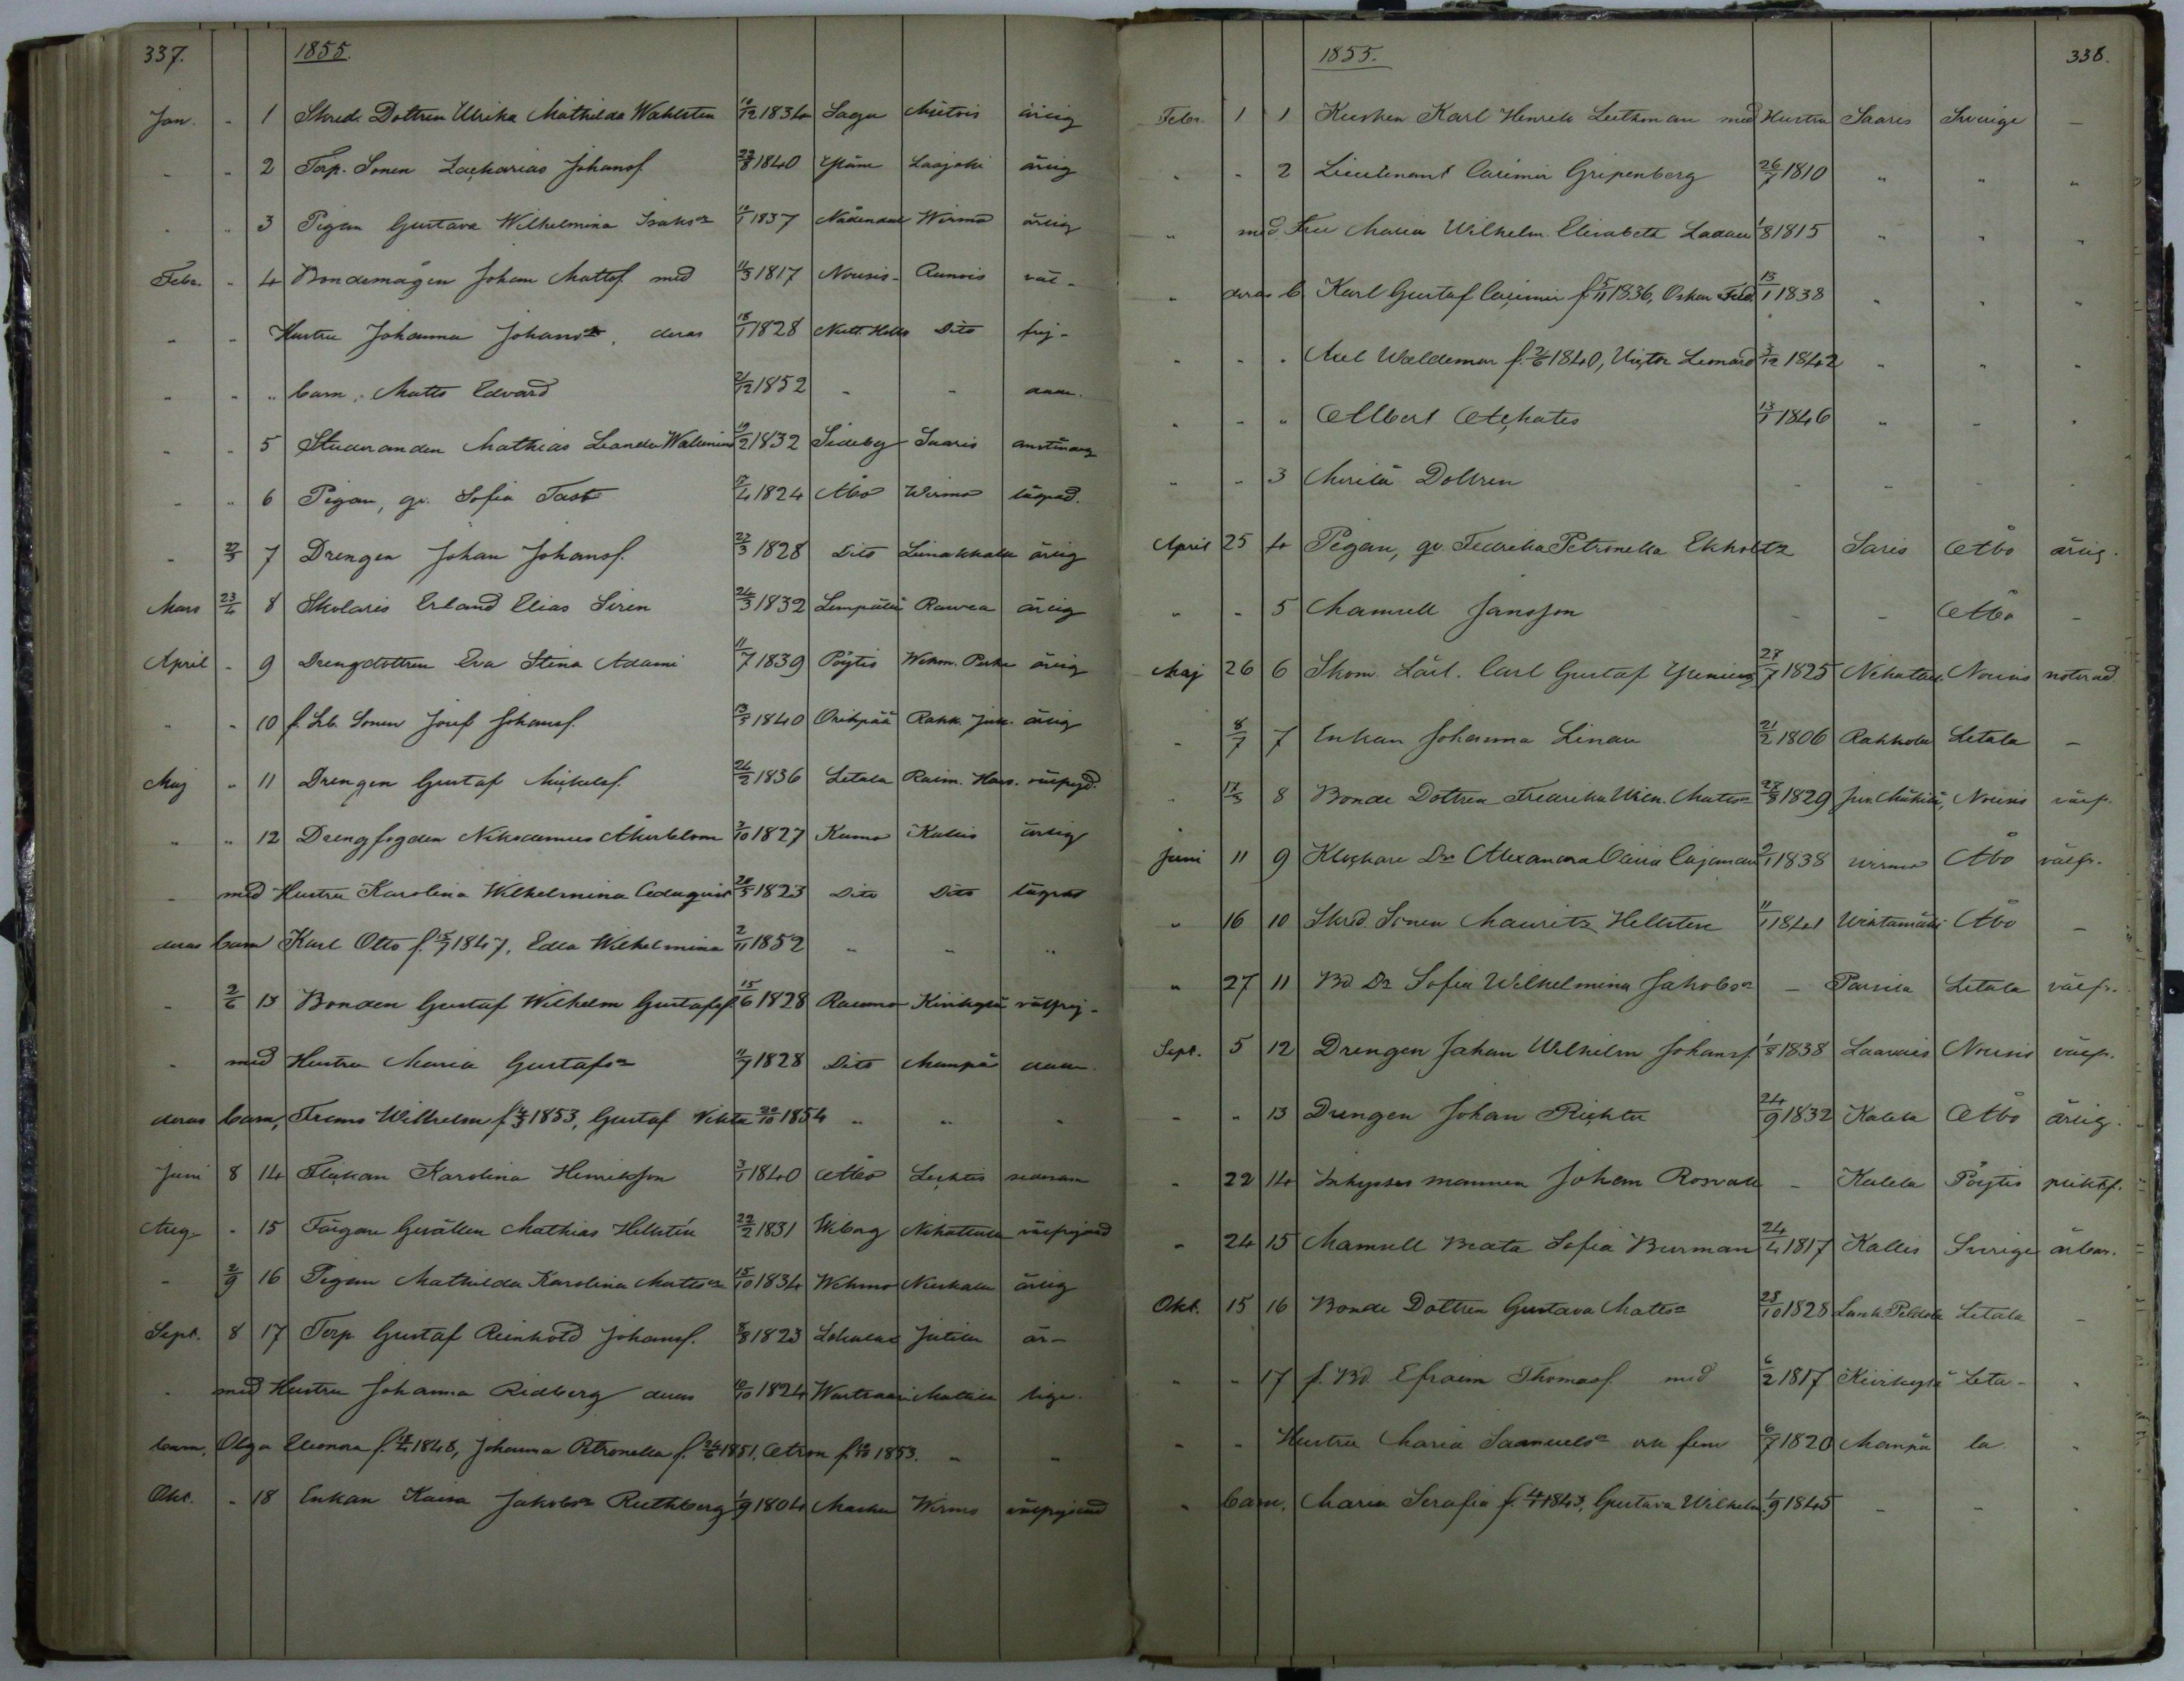 337. 1855.
Jan. - 1 Skred. Dottren Ulrika Mathilda Wahlsten 10/12 1834 Sagu Mietois ärlig
" " 2 Torp. Sonen Zacharias Johansf. 22/8 1840 Yläne Laajoki ärlig
" " 3 Pigan Gustava Wilhelmina Isaksdr 1837 Nådendal Wirmo ärlig
Febr. " 4 Bondemågen Johan Mattsf. med 11/3 1817 Nousis Runois väl-
" " Hustru Johanna Johansdr, deras 18/1 1828 Dito frej-
" " " barn, Matts Edvard 21/12 1852 - - dade.
" " 5 Studeranden Mathias Leander Wallenius 19/2 1832 Sideby Saaris anständig
" " 6 Pigan, gv. Sofia Tast 1824 Åbo Wirmo lägrad.
" 27/3 7 Drengen Johan Johansf. 22/3 1828 Dito Linakkala ärlig
Mars 23/4 8 Skolaris Erland Elias Siren 24/3 1832 Lempälä Rawea ärlig
April - 9 Drengdottren Eva Stina Adami 11/7 1839 Pöytis Wehm. ärlig
" " 10 f. Lb. Sonen Josef Johansf. 13/3 1840 Orihpää Rahk. Juk. ärlig
Maj " 11 Drengen Gustaf Michelsf. 24/2 1836 Letala Raim. Hans. välfrejd.
" " 12 Drengfogden Nikodemus Åkerblom 3/10 1827 Kumo Kallis ärlig
" med Hustru Karolina Wilhelmina Cedeqvist 20/3 1823 Dito Dito lägrad
deras barn Karl Otto f. 15/7 1847, Edla Wilhelmina 2/11 1852 " " "
" 2/6 13 Bonden Gustaf Wilhelm Gustafsf. 15/6 1828 Raumo Kirikylä välfrej-
" med Hustru Maria Gustafsdr 11/7 1828 Dito Manpä dade.
deras barn, Frans Wilhelm f. 1853, Gustaf Viktor 22/10 1854 " " "
Juni 8 14 Flickan Karolina Henriksson 3/1 1840 Åbo Lechtis sedesam
Aug. - 15 Färgare Gesällen Mathias Hellstén 22/2 1831 Wiborg Nihattula välfrejdad
" 2/9 16 Pigan Mathilda Karolina Mattsdr 15/10 1834 Wehmo Nuhala ärlig
Sept. 8 17 Torp Gustaf Reinhold Johansf. 8/8 1823 Lokalax Jutila är-
" med Hustru Johanna Ridberg deras 10/10 1824 Wartsaari Mattila liga.
barn, Olga Eleonora f. 1848, Johanna Petronella f. 24/6 1851, Aron f. 1853. " "
Okt. " 18 Enkan Kaisa Jakobsdr Ruthberg 1/9 1804 Masku Wirmo välfrejdad
1855. 338.
Febr. 1 1 Kusken Karl Henrik Leethman med Hustru Saaris Sverige -
" " 2 Lieutenant Casimir Gripenberg 26/7 1810 " " "
" med Fru Maria Wilhelm. Elisabeth Ladau 1/8 1815 " " "
" deras b. Karl Gustaf Casimir f. 5/11 1836, Oskar Ferd. 13/1 1838 " " "
" " " Axel Waldemar f. 2/6 1840, Victor Leonard 3/12 1842 " " "
" " " Albert Achates 13/1 1846 " " "
" " 3 Merilä Dottren - - - -
April 25 4 Pigan, gv. Fedrika Petronella Ekholtz Saris Åbo ärlig.
" " 5 Mamsell Jansson - - Åbo -
Maj 26 6 Skom. Lärl. Carl Gustaf Grenius 27/7 1825 Nihatula Nousis noterad.
" 8/7 7 Enkan Johanna Linau 21/2 1806 Rahkola Letala -
" 17/3 8 Bonde Dottren Fredrika Ulrica Matsdr 27/8 1829 Jun. Mäkilä, Nousis välf.
Juni 11 9 Klockare Dr Alexandra Maria Cajander 2/1 1838 Wirmo Åbo välfr.
" 16 10 Skred. Sonen Mauritz Hellsten 11/1 1841 Wirtamäki Åbo -
" 27 11 Bd Dr Sofia Wilhelmina Jakobsdr - Parsila Letala välfr.
Sept. 5 12 Drengen Johan Wilhelm Johansf. 1/8 1838 Laavais Nousis välfr.
" " 13 Drengen Johan Richter 24/9 1832 Kalela Åbo ärlig.
" 22 14 Inhysses mannen Johan Rosvall - Kalela Pöytis
" 24 15 Mamsell Beata Sofia Burman 24/4 1817 Kallis Sverige ärbar.
Okt. 15 16 Bonde Dottren Gustava Mattsdr 28/10 1828 Lank. Peldola Letala -
" " 17 f. Bd. Efraim Thomasf. med 6/2 1817 Kirikylä Leta- "
" " Hustru Maria Samuelsdr och fem 6/7 1820 Manpä la "
" barn, Maria Serafia f. 1843, Gustava Wilhelm. 1/9 1845 - - "